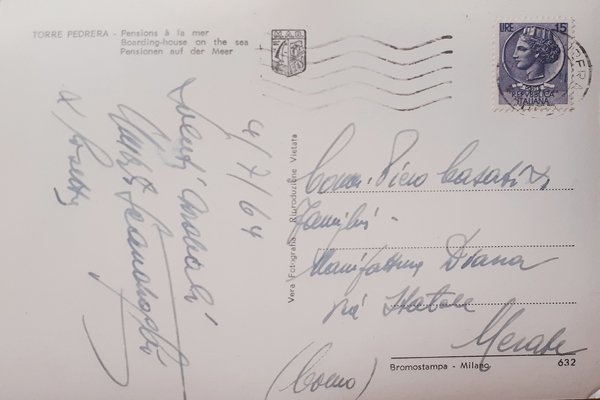 TORRE PEDRERA - Pensions à la mer
Boarding-house on the sea
Pensionen auf der Meer
LIRE 15
REPVBBLICA
ITALIANA
4/7/64
Vera Fotografia - Riproduzione Vietata
Comm. Piero Casati &
Famiglia -
Manifattura Diana
Via Statale
Merate
(Como)
Bromostampa - Milano
632